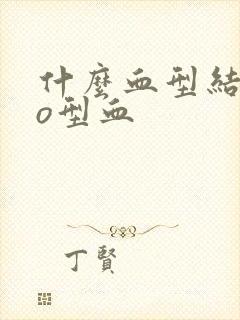 什麼血型結
o型血
丁賢